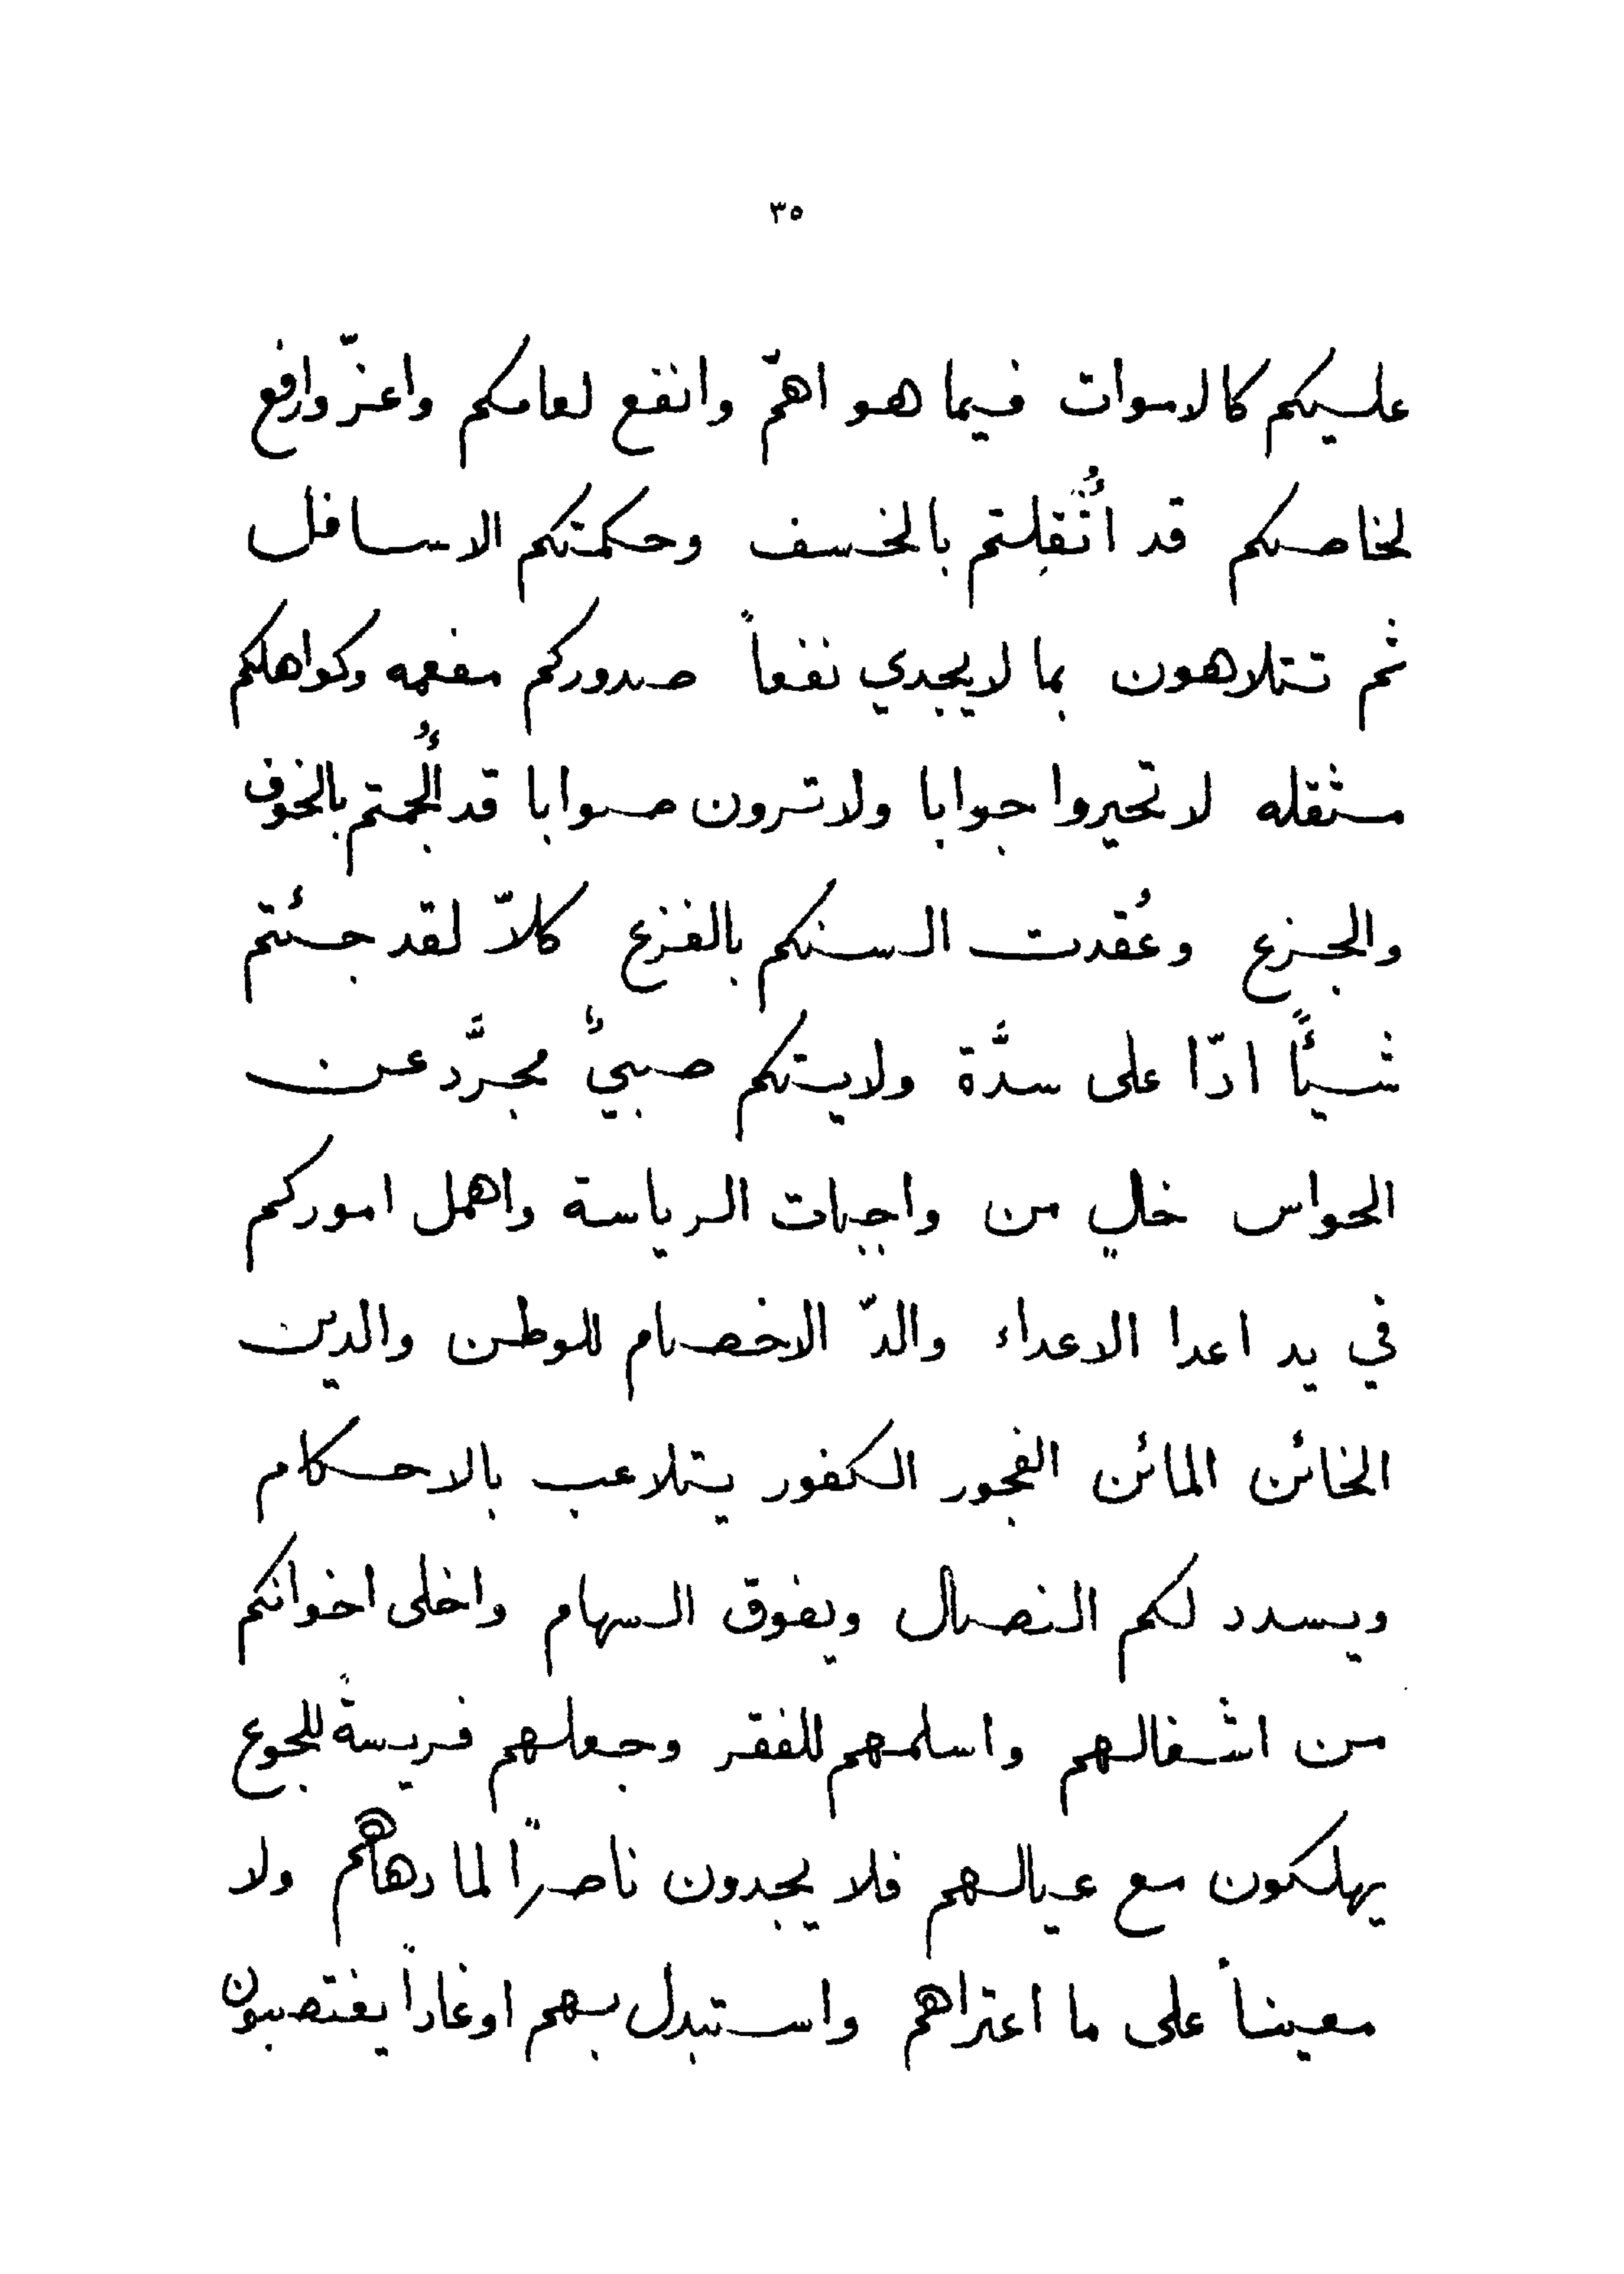 ٣٥
عليكم كالاموات فيما هو اهمّ وانفع لعامكم واعزّ وارفع
لخاصكم قد اثقلتم بالخسف وحكمتكم الاسافل
ثم تتلاهون بما لا يجدي نفعاً صدوركم مفعمه وكواهلكم
مثقله لا تحيروا جوابا ولا ترون صوابا قد أُلجمتم بالخوف
والجزع وعُقدت السنكم بالفزع كلاّ لقد جئتم
شيئًا ادّا على سدَّة ولايتكم صبيٌّ مجرَّد عن
الحواس خالٍ من واجبات الرياسة واهمل اموركم
في يد اعدا الاعداء والدّ الاخصام للوطن والدين
الخائن المائن الفجور الكفور يتلاعب بالاحكام
ويسدد لكم النصال ويفوّق السهام واخلى اخوانكم
من اشغالهم واسلمهم للفقر وجعلهم فريسةً للجوع
يهلكون مع عيالهم فلا يجدون ناصرًا لما دهاهم ولا
معيناً على ما اعتراهم واستبدل بهم اوغاداً يغتصبون